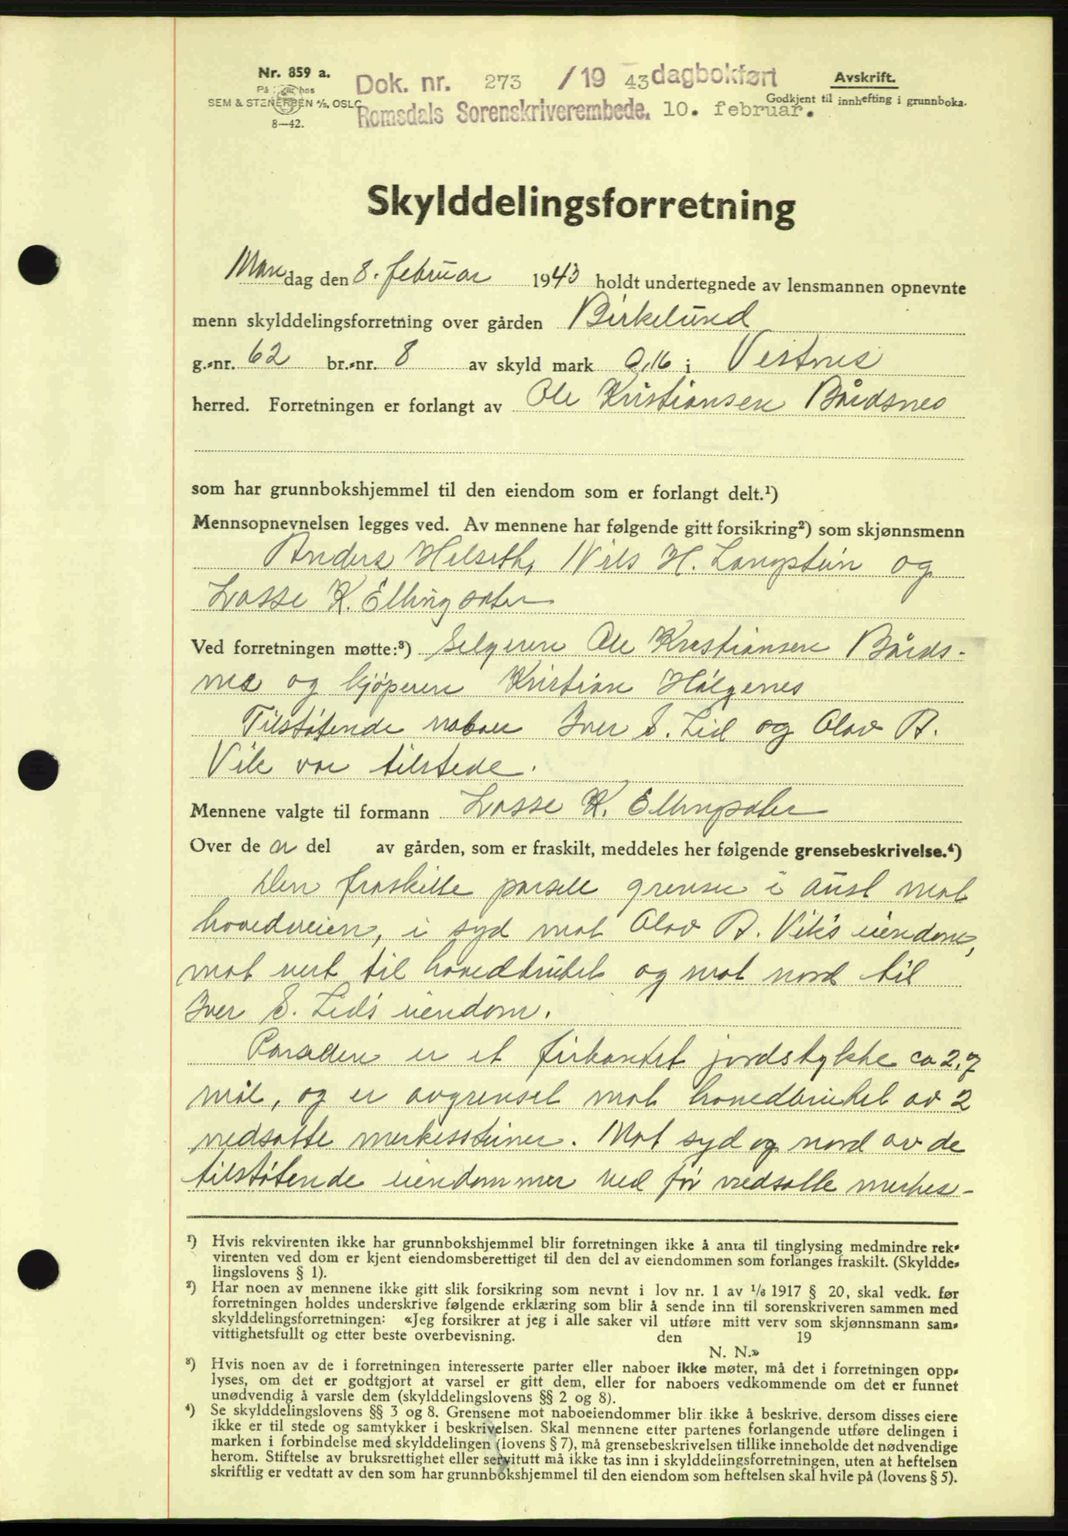 Nr. 859 a.
SEM & STENERSEN A/S, OSLO
8—42.
Dok. nr. 273 /19 43 dagbokført
Romsdals Sorenskriverembede. 10. februar.
Avskrift.
Godkjent til innhefting i grunnboka.
Skylddelingsforretning
Mandag den 8. februar 1943 holdt undertegnede av lensmannen opnevnte
menn skylddelingsforretning over gården Birkelund
g.-nr. 62 br.-nr. 8 av skyld mark 0,16 i Vestnes
herred. Forretningen er forlangt av Ole Kristiansen Bårdsnes
som har grunnbokshjemmel til den eiendom som er forlangt delt.¹)
Mennsopnevnelsen legges ved. Av mennene har følgende gitt forsikring²) som skjønnsmenn
Anders Helseth, Nils H. Langstein og
Lasse K. Ellingsæter
Ved forretningen møtte:³) Selgeren Ole Kristiansen Bårds-
nes og kjøperen Kristian Helgenes
Tilstøtende naboer Iver E. Lid og Olav A.
Vik var tilstede.
Mennene valgte til formann Lasse K. Ellingsæter
Over de n del av gården, som er fraskilt, meddeles her følgende grensebeskrivelse.⁴)
Den fraskilte parsell grenser i aust mot
hovedveien, i syd mot Olav A. Vik's eiendom,
mot vest til hovedbruket og mot nord til
Iver E. Lid's eiendom.
Parsellen er et firkantet jordstykke ca 2,7
mål, og er avgrenset mot hovedbruket av 2
nedsatte merkessteiner. Mot syd og nord av de
tilstøtende eiendommer ved før nedsatte merkes-
¹) Hvis rekvirenten ikke har grunnbokshjemmel blir forretningen ikke å anta til tinglysing medmindre rek-
virenten ved dom er kjent eiendomsberettiget til den del av eiendommen som forlanges fraskilt. (Skyldde-
lingslovens § 1).
²) Har noen av mennene ikke gitt slik forsikring som nevnt i lov nr. 1 av 1/6 1917 § 20, skal vedk. før
forretningen holdes underskrive følgende erklæring som blir å sende inn til sorenskriveren sammen med
skylddelingsforretningen: «Jeg forsikrer at jeg i alle saker vil utføre mitt verv som skjønnsmann sam-
vittighetsfullt og etter beste overbevisning. den 19
N. N.»
³) Hvis noen av de i forretningen interesserte parter eller naboer ikke møter, må det i forretningen opp-
lyses, om det er godtgjort at varsel er gitt dem, eller for naboers vedkommende om det er funnet
unødvendig å varsle dem (skylddelingslovens §§ 2 og 8).
⁴) Se skylddelingslovens §§ 3 og 8. Grensene mot naboeiendommer blir ikke å beskrive, dersom disses eiere
ikke er til stede og samtykker i beskrivelsen. Skal mennene etter partenes forlangende utføre delingen i
marken i forbindelse med skylddelingen (lovens § 7), må grensebeskrivelsen tillike inneholde det nødvendige
herom. Stiftelse av bruksrettighet eller servitutt må ikke tas inn i skylddelingsforretningen, uten at heftelsen
skriftlig er vedtatt av den som har grunnbokshjemmel til den eiendom som heftelsen skal hvile på (lovens § 5).